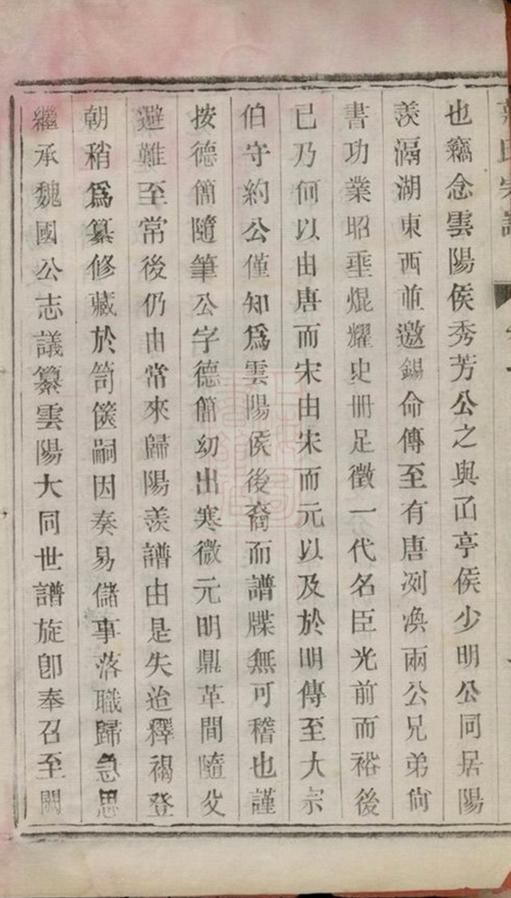 也竊念雲陽侯秀芳公之與臿亭侯少明公同居陽
羨滆湖東西並邀錫命傳至有唐冽渙兩公兄弟尙
書功業昭垂焜耀史册足徵一代名臣光前而裕後
已乃何以由唐而宋由宋而元以及於明傳至大宗
伯守約公僅知爲雲陽侯後裔而譜牒無可稽也謹
按德簡隨筆公字德簡幼出寒微元明鼎革間隨父
避難至常後仍由常來歸陽羨譜由是失迨釋褐登
朝稍爲纂修藏於笥篋嗣因奏易儲事落職歸急思
繼承魏國公志議纂雲陽大同世譜旋卽奉召至闕